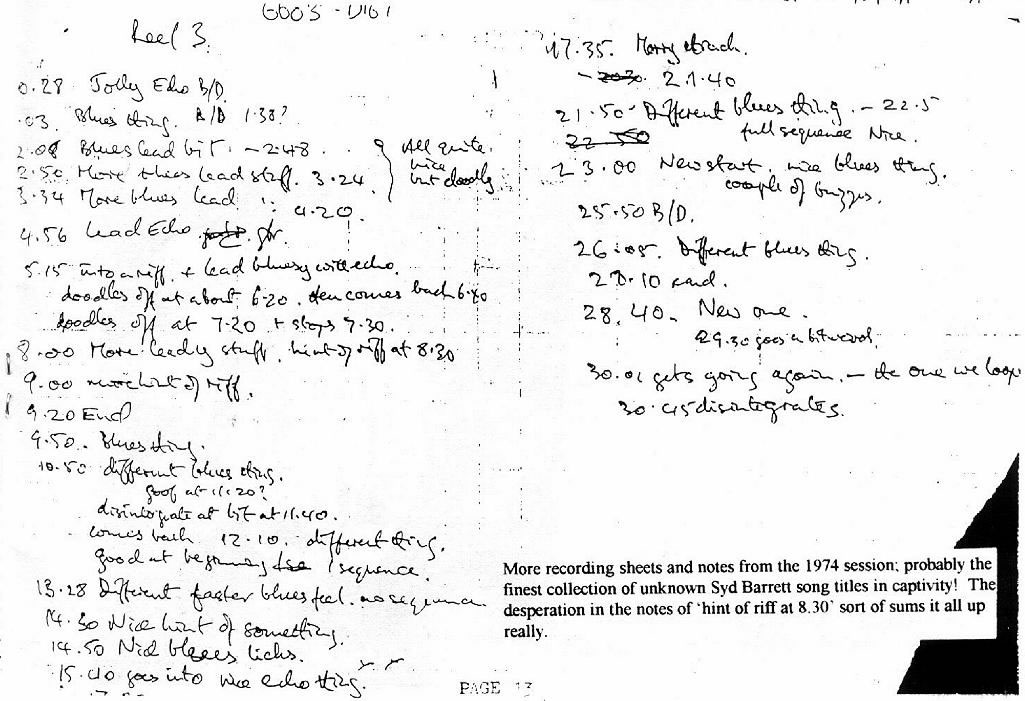 Reel 3.
0.28 Jolly Echo B/D
.03. Blues thing. B/D 1.38?
2.08 Blues lead bit. - 2.48.
2.50 More blues lead stuff. 3.24
All quite nice but doodly
3.34 More blues lead
4.20.
4.56 Lead Echo gtr.
5.15 into a riff + lead bluesy with echo.
doodles off at about 6.20. then comes back 6.40
doodles off at 7.20 + stops 7.30.
8.00 More leady stuff, hint of riff at 8.30
9.00 more hint of riff.
9.20 End
9.50. Blues thing.
10.50 different blues thing.
goof at 11.20?
disintegrate at bit at 11.40.
comes back 12.10. different thing.
good at beginning sequence.
13.28 Different faster blues feel. no sequence
14.30 Nice hint of something.
14.50 Nice blues licks.
15.40 goes into nice echo thing.
17.35. Merry
- 21.40
21.50 Different blues thing. - 22.5
full sequence Nice.
22.50
23.00 New start. nice blues thing.
couple of
25.50 B/D.
26.05. Different blues thing.
28.10 end.
28.40. New one.
29.30 goes a bit weird.
30.01 gets going again. - the one we loop
30.45 disintegrates.
More recording sheets and notes from the 1974 session; probably the
finest collection of unknown Syd Barrett song titles in captivity! The
desperation in the notes of 'hint of riff at 8.30' sort of sums it all up
really.
PAGE 13